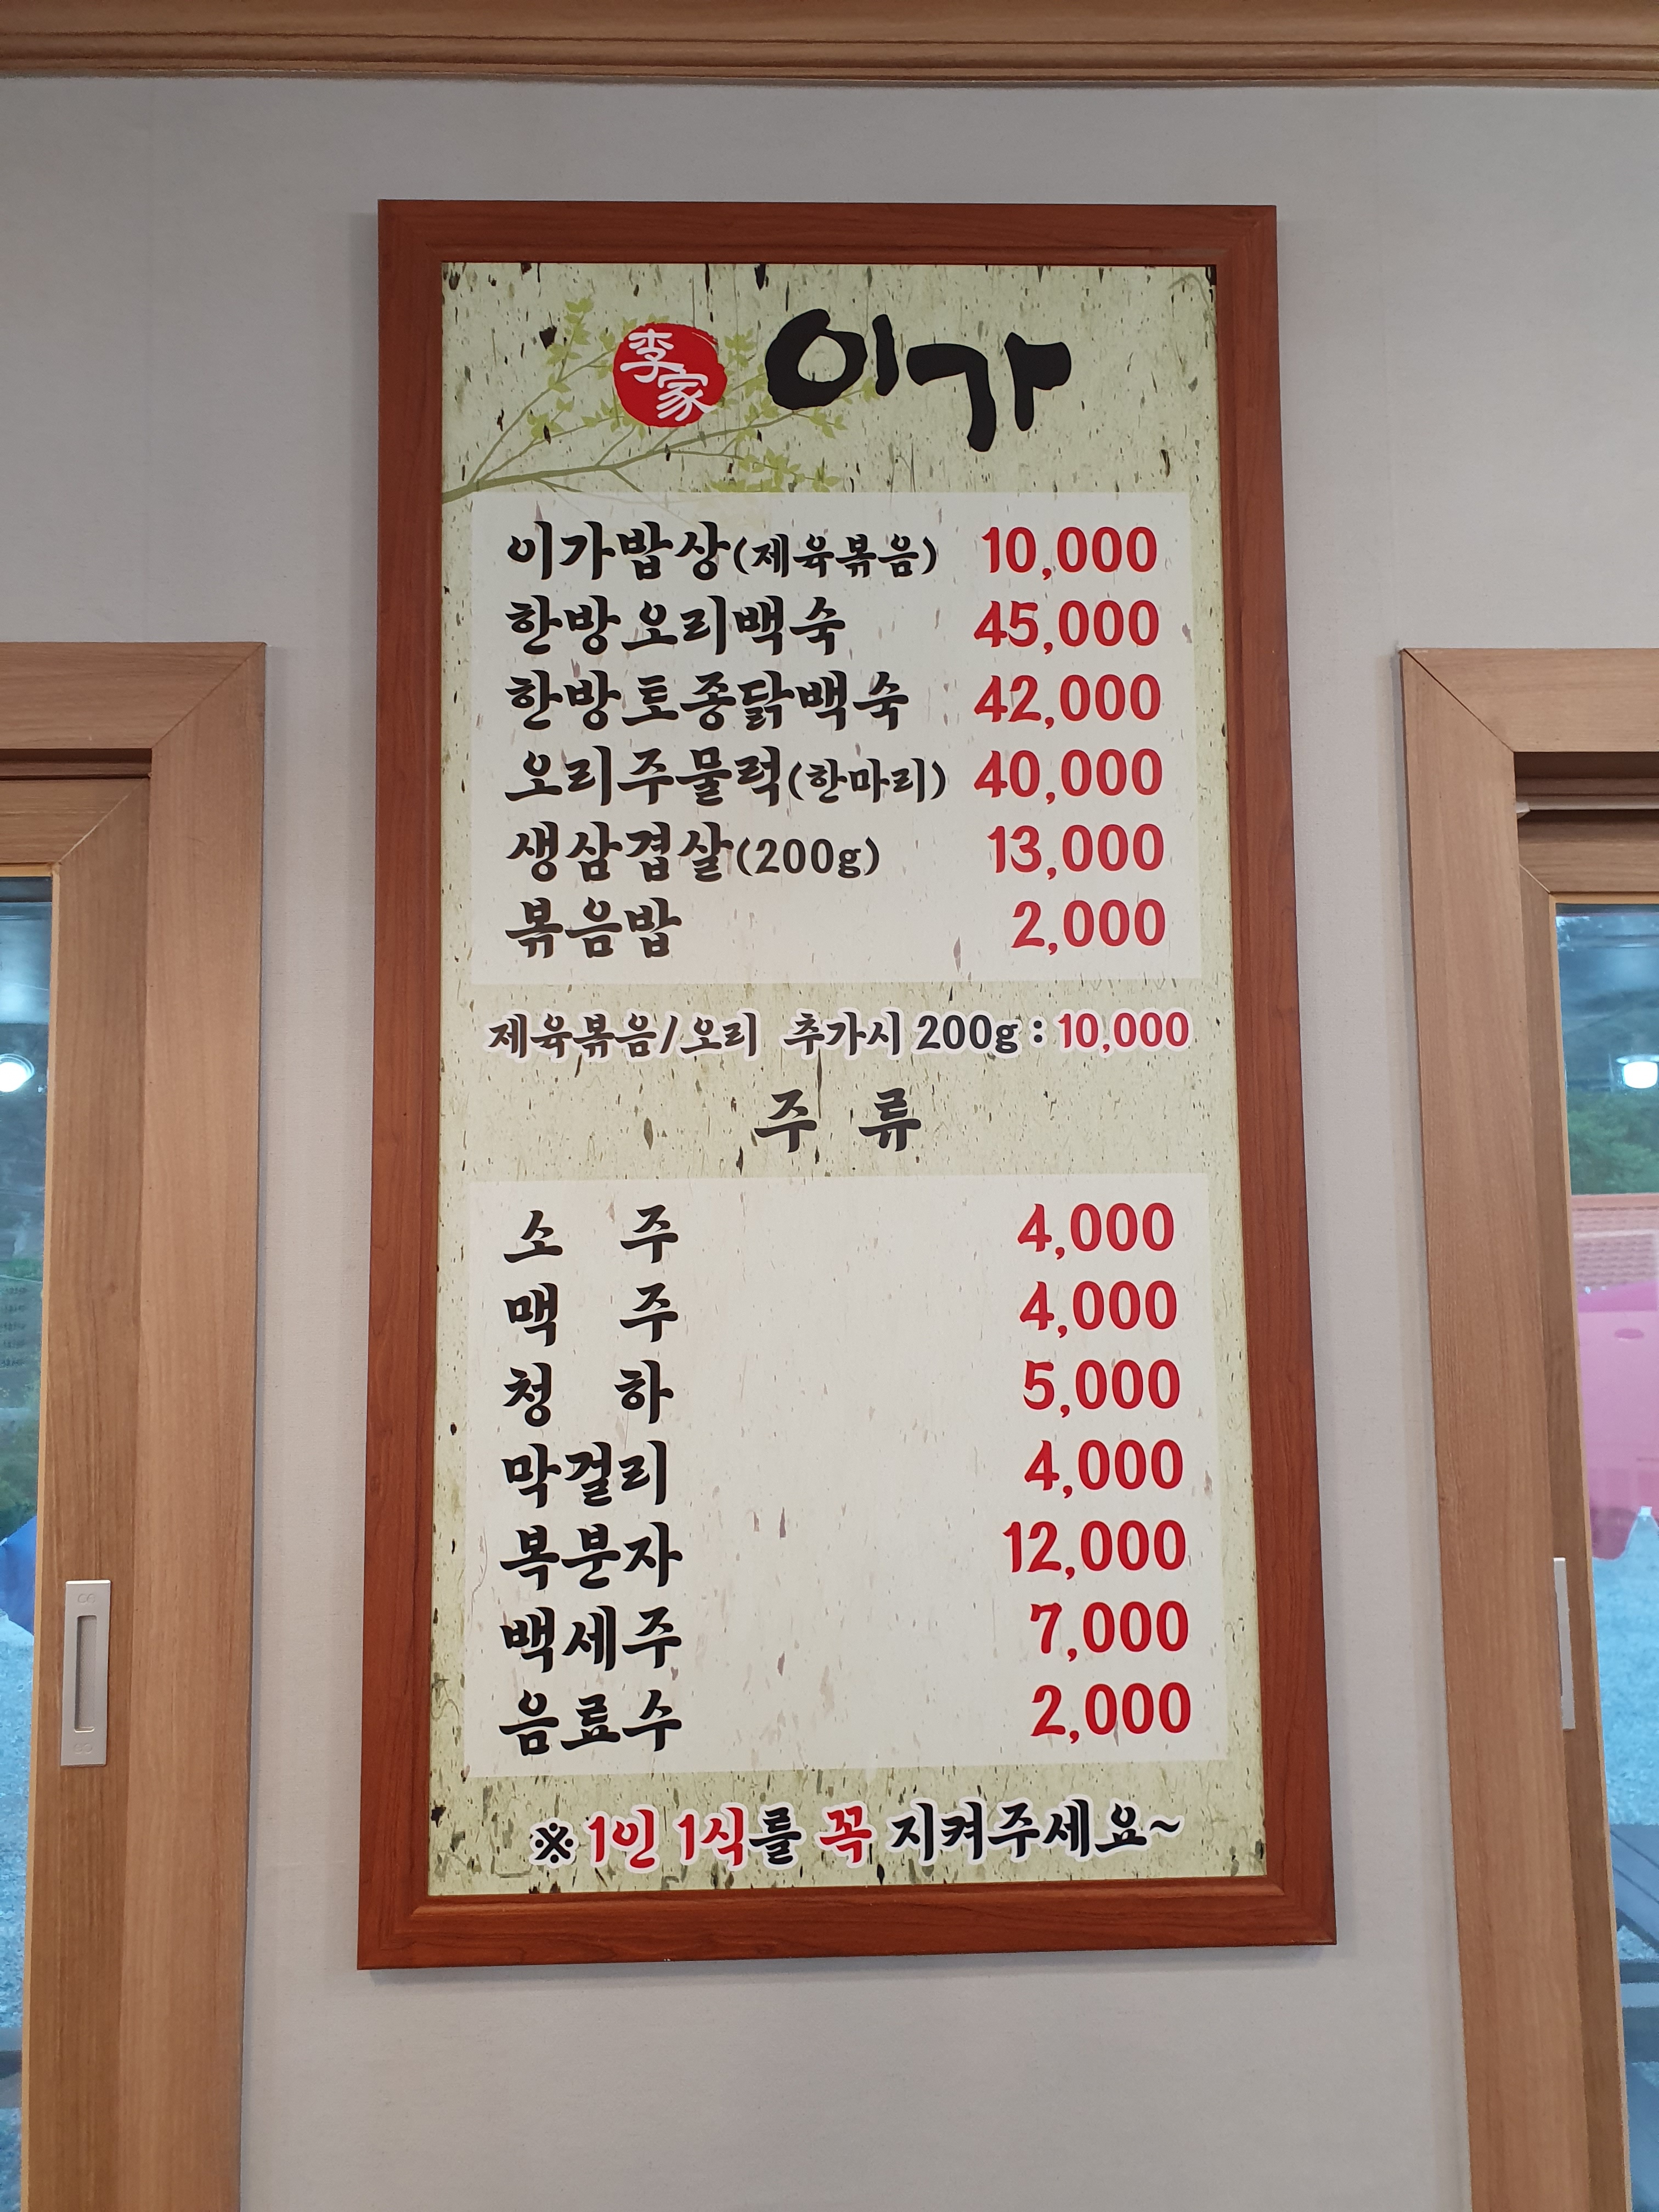 李家 이가
이가밥상(제육볶음) 10,000
한방오리백숙 45,000
한방토종닭백숙 42,000
오리주물럭(한마리) 40,000
생삼겹살(200g) 13,000
볶음밥 2,000
제육볶음/오리 추가시 200g : 10,000
주 류
소 주 4,000
맥 주 4,000
청 하 5,000
막걸리 4,000
복분자 12,000
백세주 7,000
음료수 2,000
※ 1인 1식를 꼭 지켜주세요~